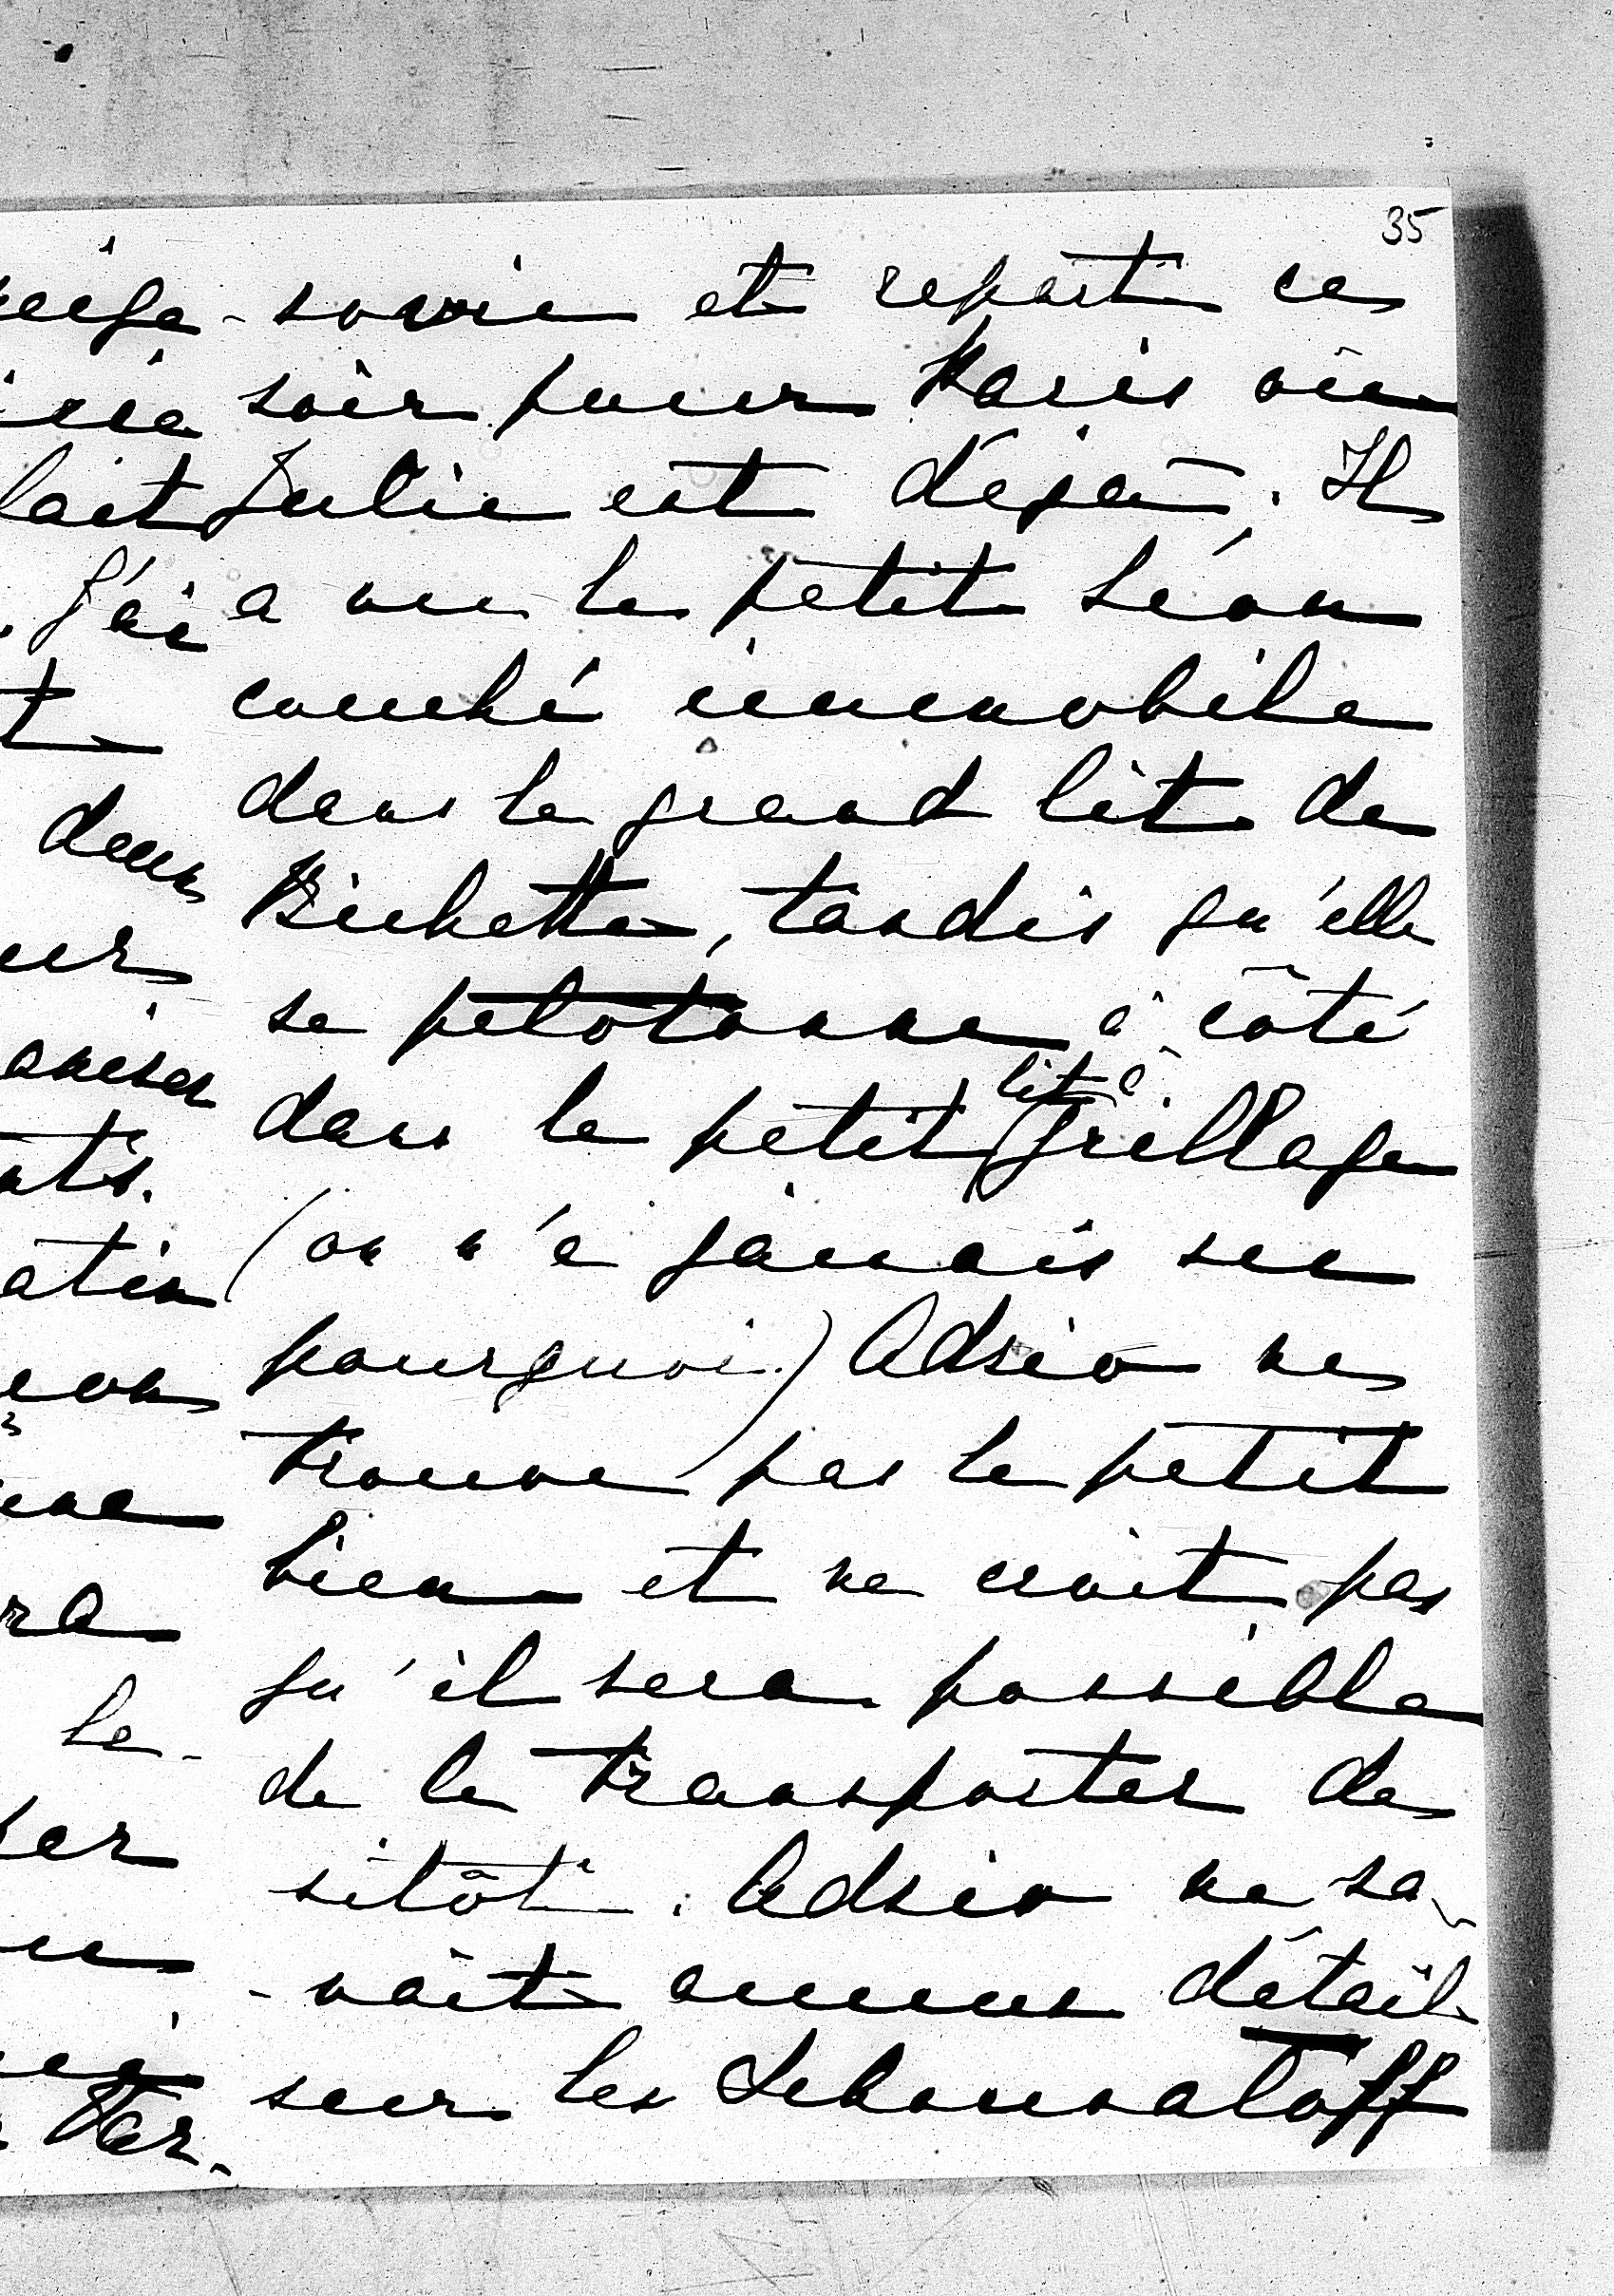 35
-sovie et repart ce
soir pour Paris où
Julie est déjà. Il
a vu le petit Léon
couché immobile
dans le grand lit de
Bichette, tandis qu'elle
se pelotonne à côté
dans le petit lit à grillage
(on n'a jamais su
pourquoi) Adsio ne
trouve pas le petit
bien et ne croit pas
qu'il sera possible
de le transporter de
sitôt. Adsio ne sa-
-vait aucun détail
sur les Schouvaloff